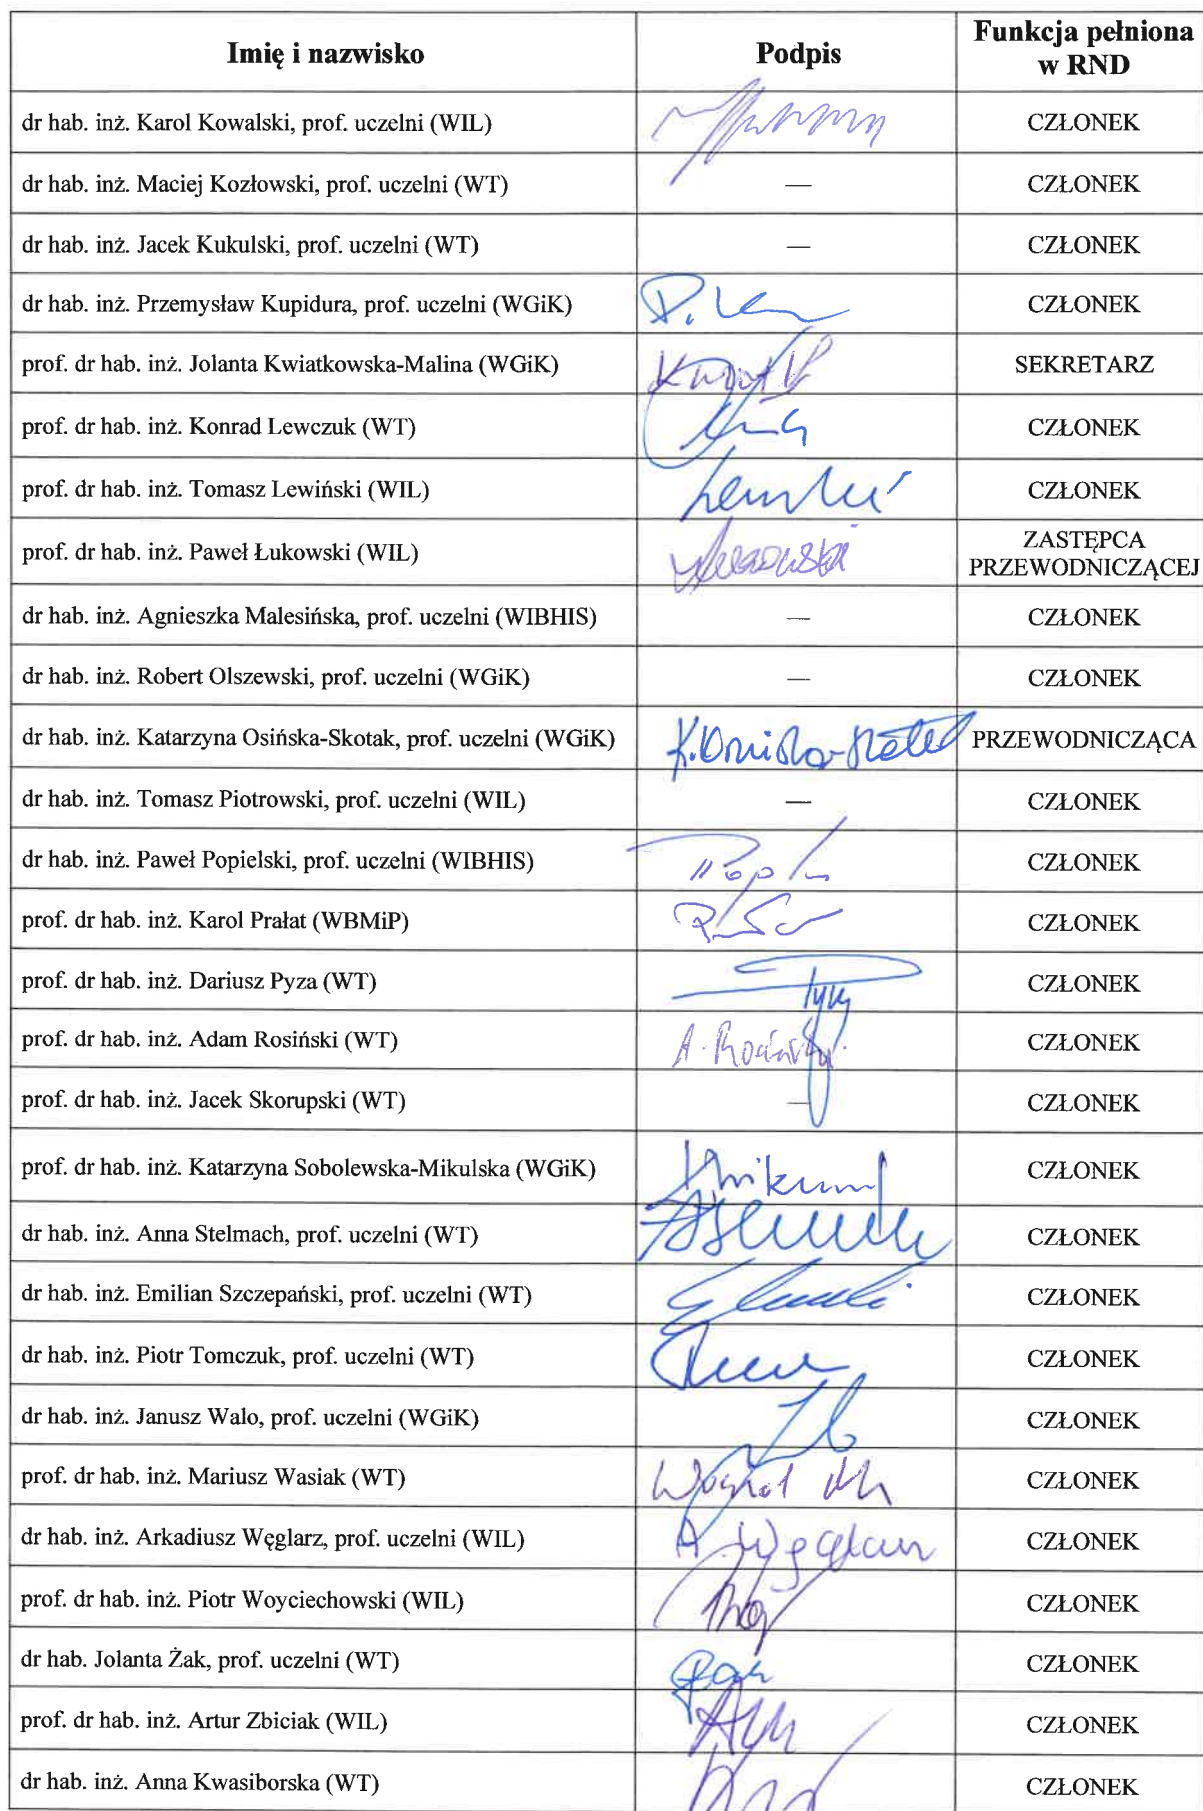 Imię i nazwisko Podpis Funkcja pełniona w RND
dr hab. inż. Karol Kowalski, prof. uczelni (WIL) CZŁONEK
dr hab. inż. Maciej Kozłowski, prof. uczelni (WT) — CZŁONEK
dr hab. inż. Jacek Kukulski, prof. uczelni (WT) — CZŁONEK
dr hab. inż. Przemysław Kupidura, prof. uczelni (WGiK) CZŁONEK
prof. dr hab. inż. Jolanta Kwiatkowska-Malina (WGiK) SEKRETARZ
prof. dr hab. inż. Konrad Lewczuk (WT) CZŁONEK
prof. dr hab. inż. Tomasz Lewiński (WIL) CZŁONEK
prof. dr hab. inż. Paweł Łukowski (WIL) ZASTĘPCA PRZEWODNICZĄCEJ
dr hab. inż. Agnieszka Malesińska, prof. uczelni (WIBHIS) — CZŁONEK
dr hab. inż. Robert Olszewski, prof. uczelni (WGiK) — CZŁONEK
dr hab. inż. Katarzyna Osińska-Skotak, prof. uczelni (WGiK) PRZEWODNICZĄCA
dr hab. inż. Tomasz Piotrowski, prof. uczelni (WIL) — CZŁONEK
dr hab. inż. Paweł Popielski, prof. uczelni (WIBHIS) CZŁONEK
prof. dr hab. inż. Karol Prałat (WBMiP) CZŁONEK
prof. dr hab. inż. Dariusz Pyza (WT) CZŁONEK
prof. dr hab. inż. Adam Rosiński (WT) CZŁONEK
prof. dr hab. inż. Jacek Skorupski (WT) — CZŁONEK
prof. dr hab. inż. Katarzyna Sobolewska-Mikulska (WGiK) CZŁONEK
dr hab. inż. Anna Stelmach, prof. uczelni (WT) CZŁONEK
dr hab. inż. Emilian Szczepański, prof. uczelni (WT) CZŁONEK
dr hab. inż. Piotr Tomczuk, prof. uczelni (WT) CZŁONEK
dr hab. inż. Janusz Walo, prof. uczelni (WGiK) CZŁONEK
prof. dr hab. inż. Mariusz Wasiak (WT) CZŁONEK
dr hab. inż. Arkadiusz Węglarz, prof. uczelni (WIL) CZŁONEK
prof. dr hab. inż. Piotr Woyciechowski (WIL) CZŁONEK
dr hab. Jolanta Żak, prof. uczelni (WT) CZŁONEK
prof. dr hab. inż. Artur Zbiciak (WIL) CZŁONEK
dr hab. inż. Anna Kwasiborska (WT) CZŁONEK